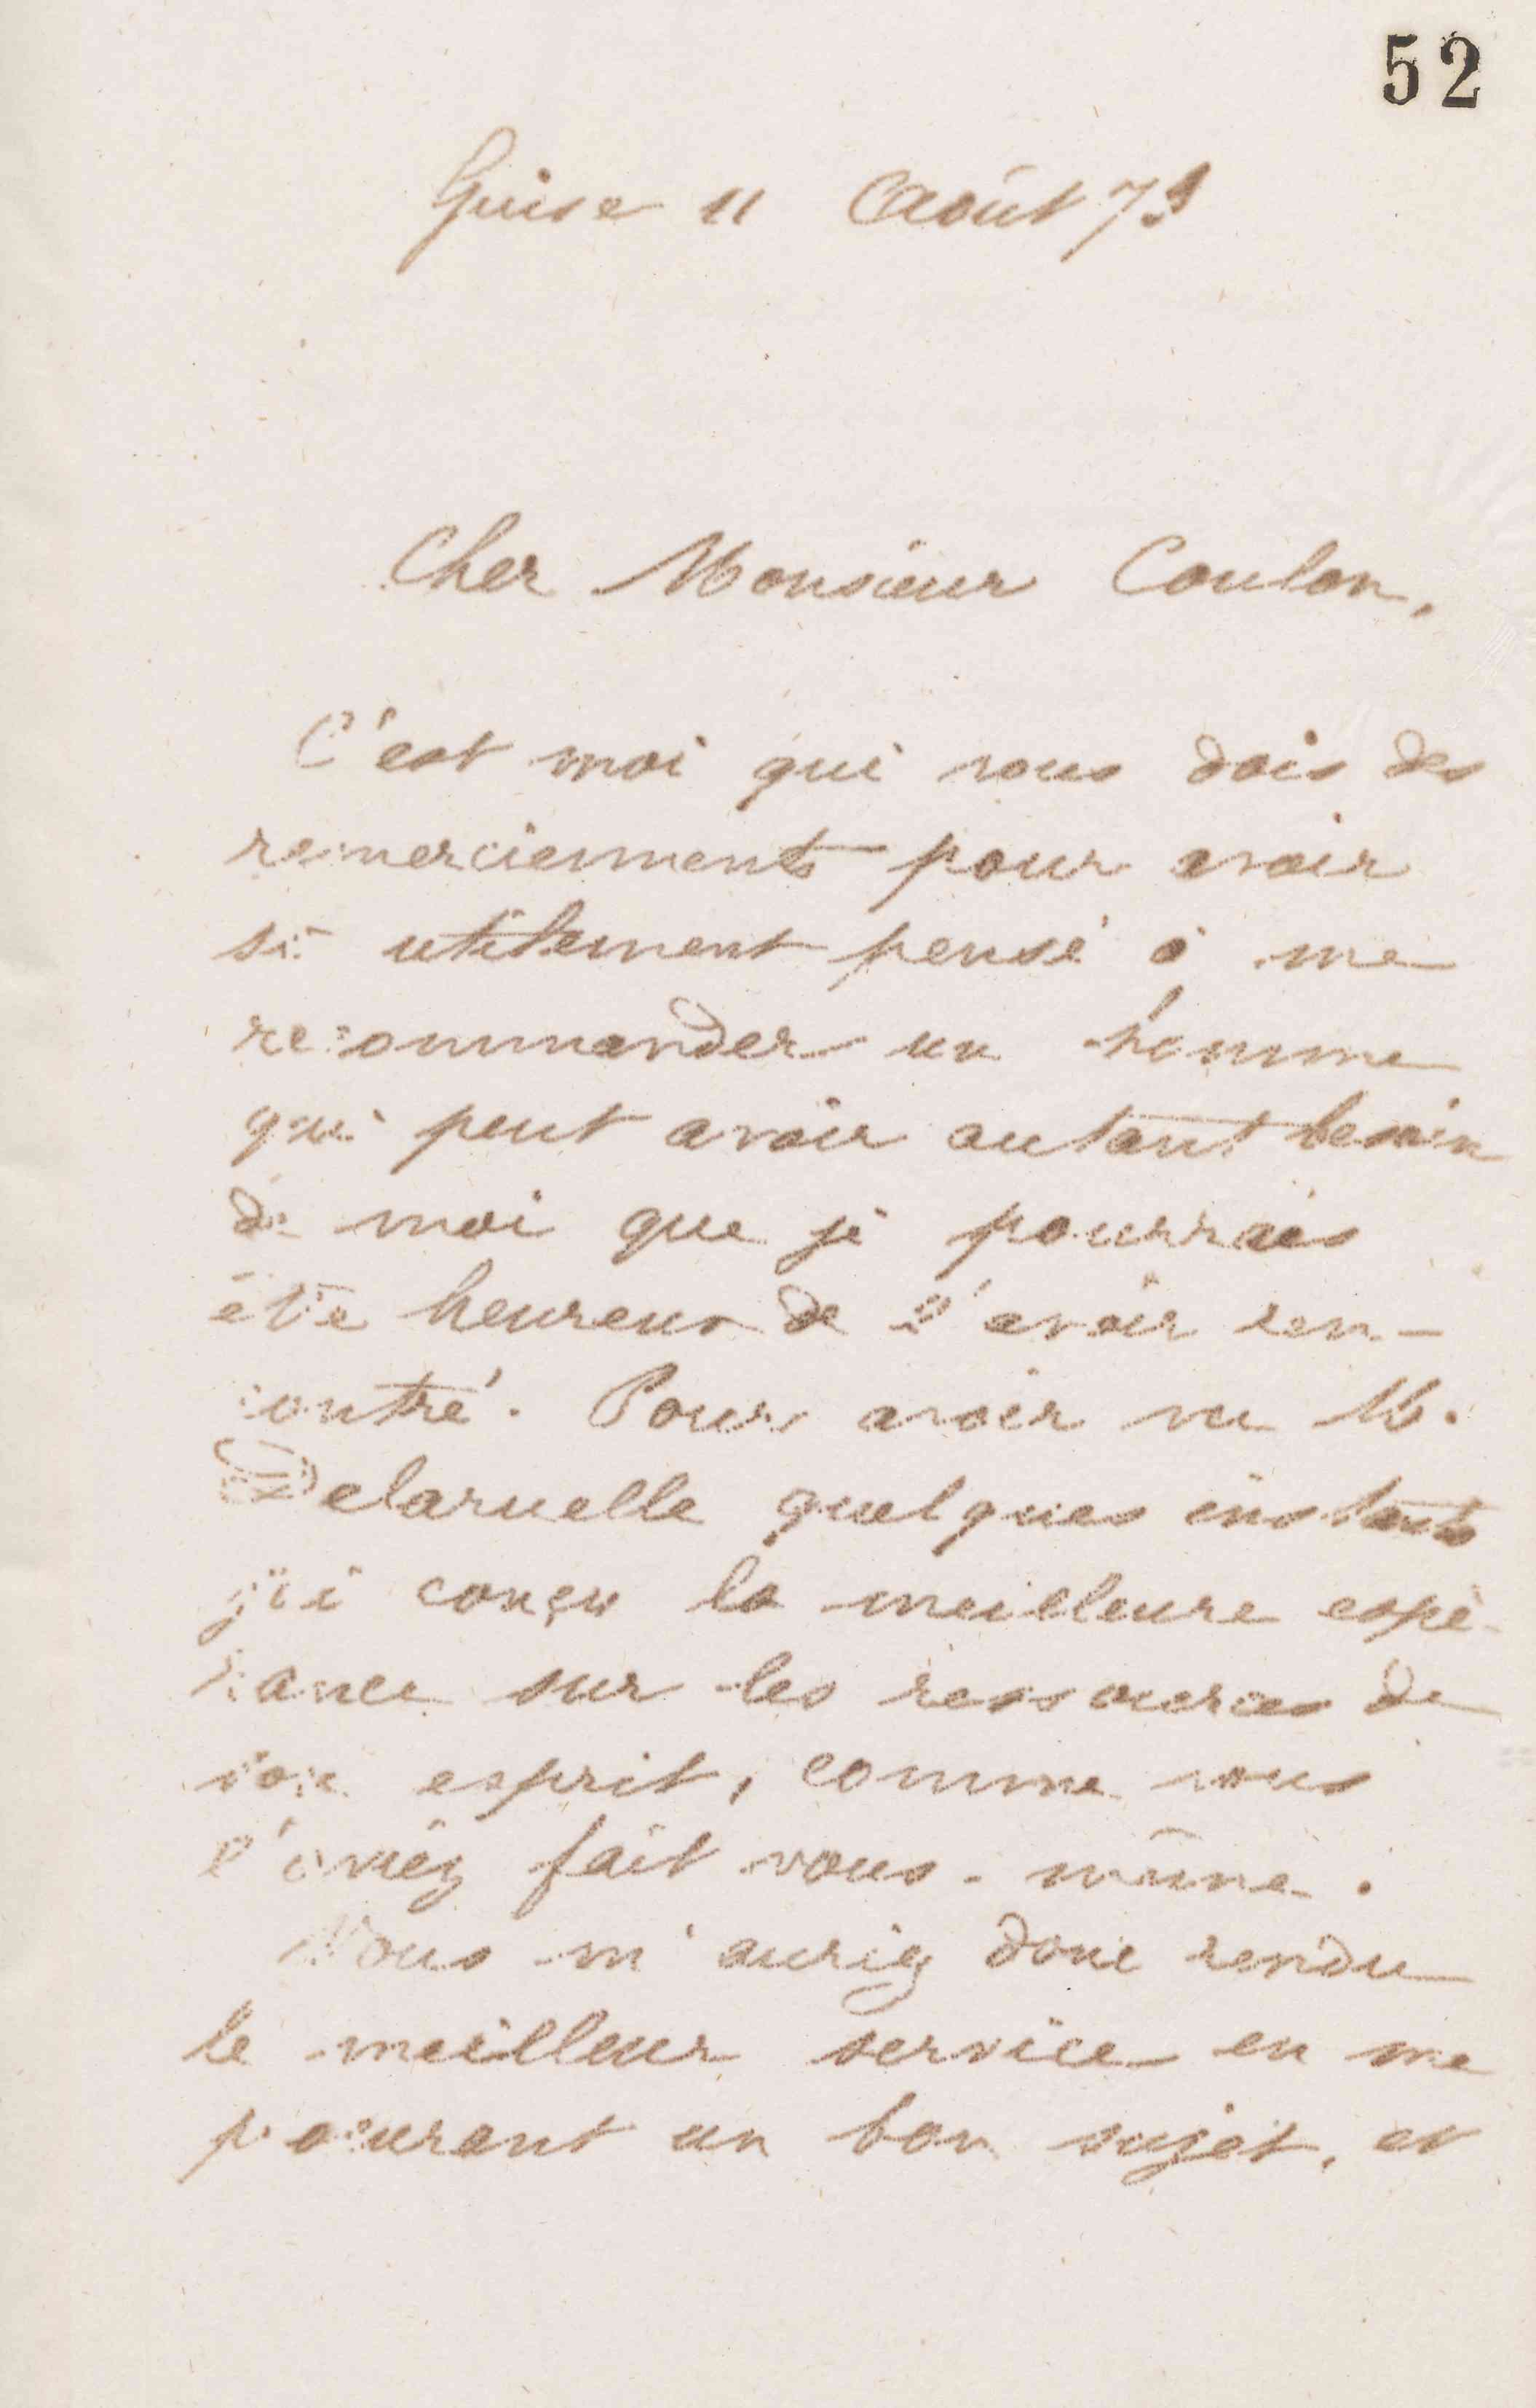 52
Guise 11 Août 73
Cher Monsieur Coulon,
C'est moi qui vous dois des
remerciements pour avoir
si utilement pensé à me
recommander un homme
qui peut avoir autant besoin
de moi que je pourrais
être heureux de l'avoir ren-
contré. Pour avoir vu M.
Delaruelle quelques instants
j'ai conçu la meilleure espé-
rance sur les ressources de
son esprit, comme vous
l'aviez fait vous-même.
Vous m'auriez donc rendu
le meilleur service en me
procurant un bon sujet, et